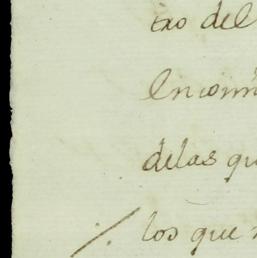 txo del
En conm
delas qu
los que